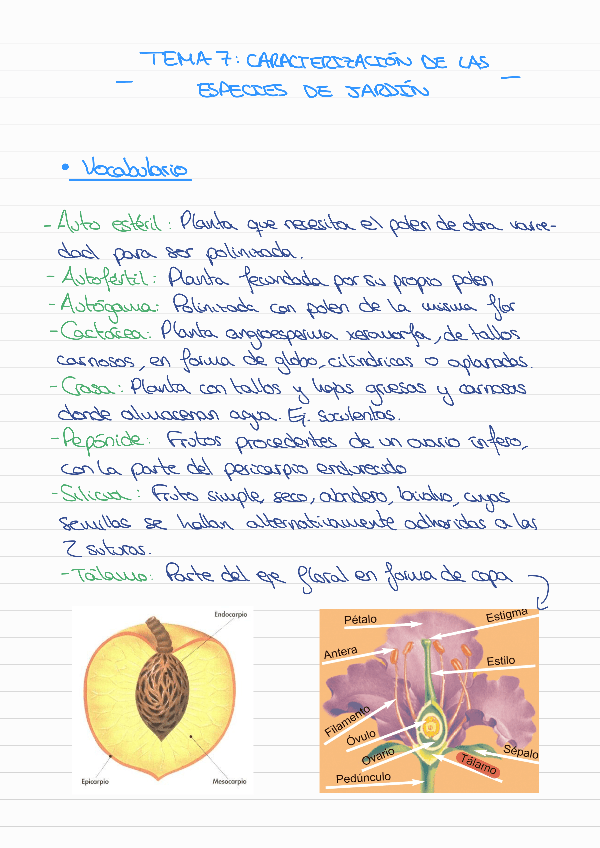 TEMA 7: CARACTERIZACIÓN DE LAS
- ESPECIES DE JARDÍN -
• Vocabulario
- Auto estéril: Planta que necesita el polen de otra varie-
dad para ser polinizada.
- Autofértil: Planta fecundada por su propio polen
- Autógama: Polinizada con polen de la misma flor
- Cactácea: Planta angiosperma xeromorfa, de tallos
carnosos, en forma de globo, cilíndricas o aplanadas.
- Crasa: Planta con tallos y hojas gruesas y carnosas
donde almacenan agua. Ej. suculentas.
- Pepónide: Frutos procedentes de un ovario ínfero,
con la parte del pericarpio endurecido
- Silicua: Fruto simple, seco, abridero, bivalvo, cuyas
semillas se hallan alternativamente adheridas a las
2 suturas.
- Tálamo: Parte del eje floral en forma de copa
Endocarpio
Epicarpio
Mesocarpio
Pétalo
Estigma
Antera
Estilo
Filamento
Óvulo
Ovario
Sépalo
Tálamo
Pedúnculo